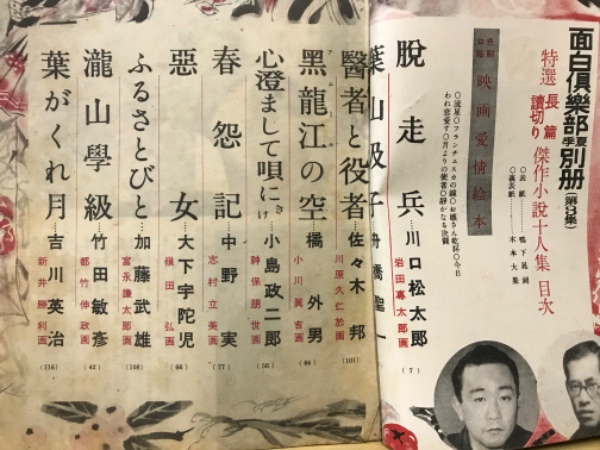 面白俱樂部夏季別册(第3集)
特選長篇讀切り傑作小説十人集 目次
○表紙…鴨下晁湖
○裏表紙…木本大果
色刷口絵 映画愛情絵本
○流星○フランチェスカの鐘○お嬢さん乾杯○今日
われ恋愛す○月よりの使者○靜かなる決闘
脱走兵…川口松太郎 岩田專太郎画 (7)
葉山汲子…舟橋聖一
醫者と役者…佐々木邦 川原久仁於画 (101)
黑龍江の空…橘外男 小川眞吉画 (86)
心澄まして唄にきけ…小島政二郎 神保朋世画 (56)
春怨記…中野実 志村立美画 (77)
惡女…大下宇陀児 槇田弘画 (66)
ふるさとびと…加藤武雄 富永謙太郎画 (108)
瀧山學級…竹田敏彦 都竹伸政画 (42)
葉がくれ月…吉川英治 新井勝利画 (116)